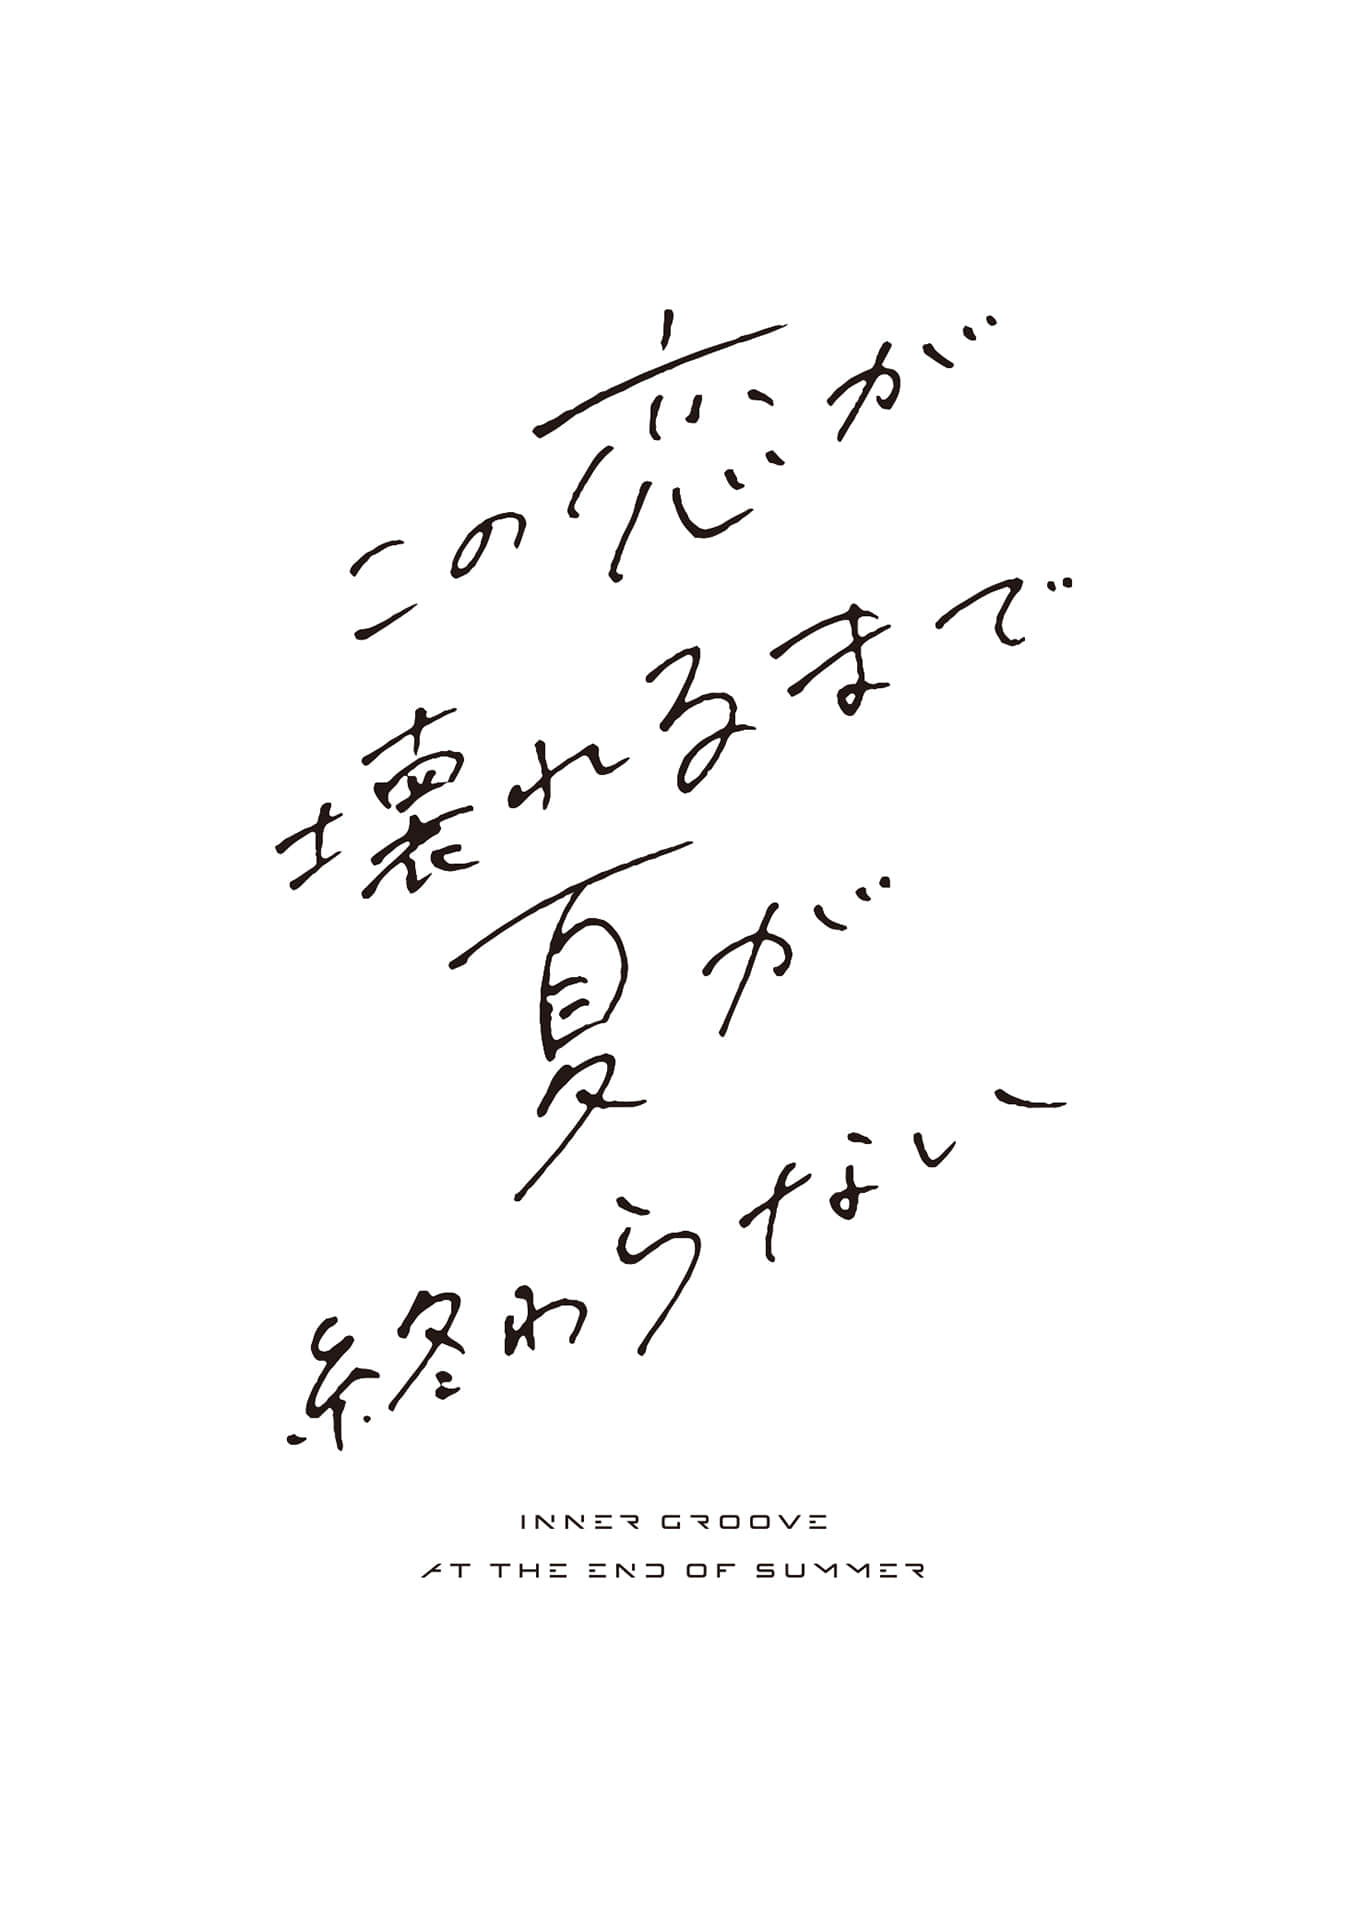 この恋が
壊れるまで
夏が
終わらない
INNER GROOVE
AT THE END OF SUMMER